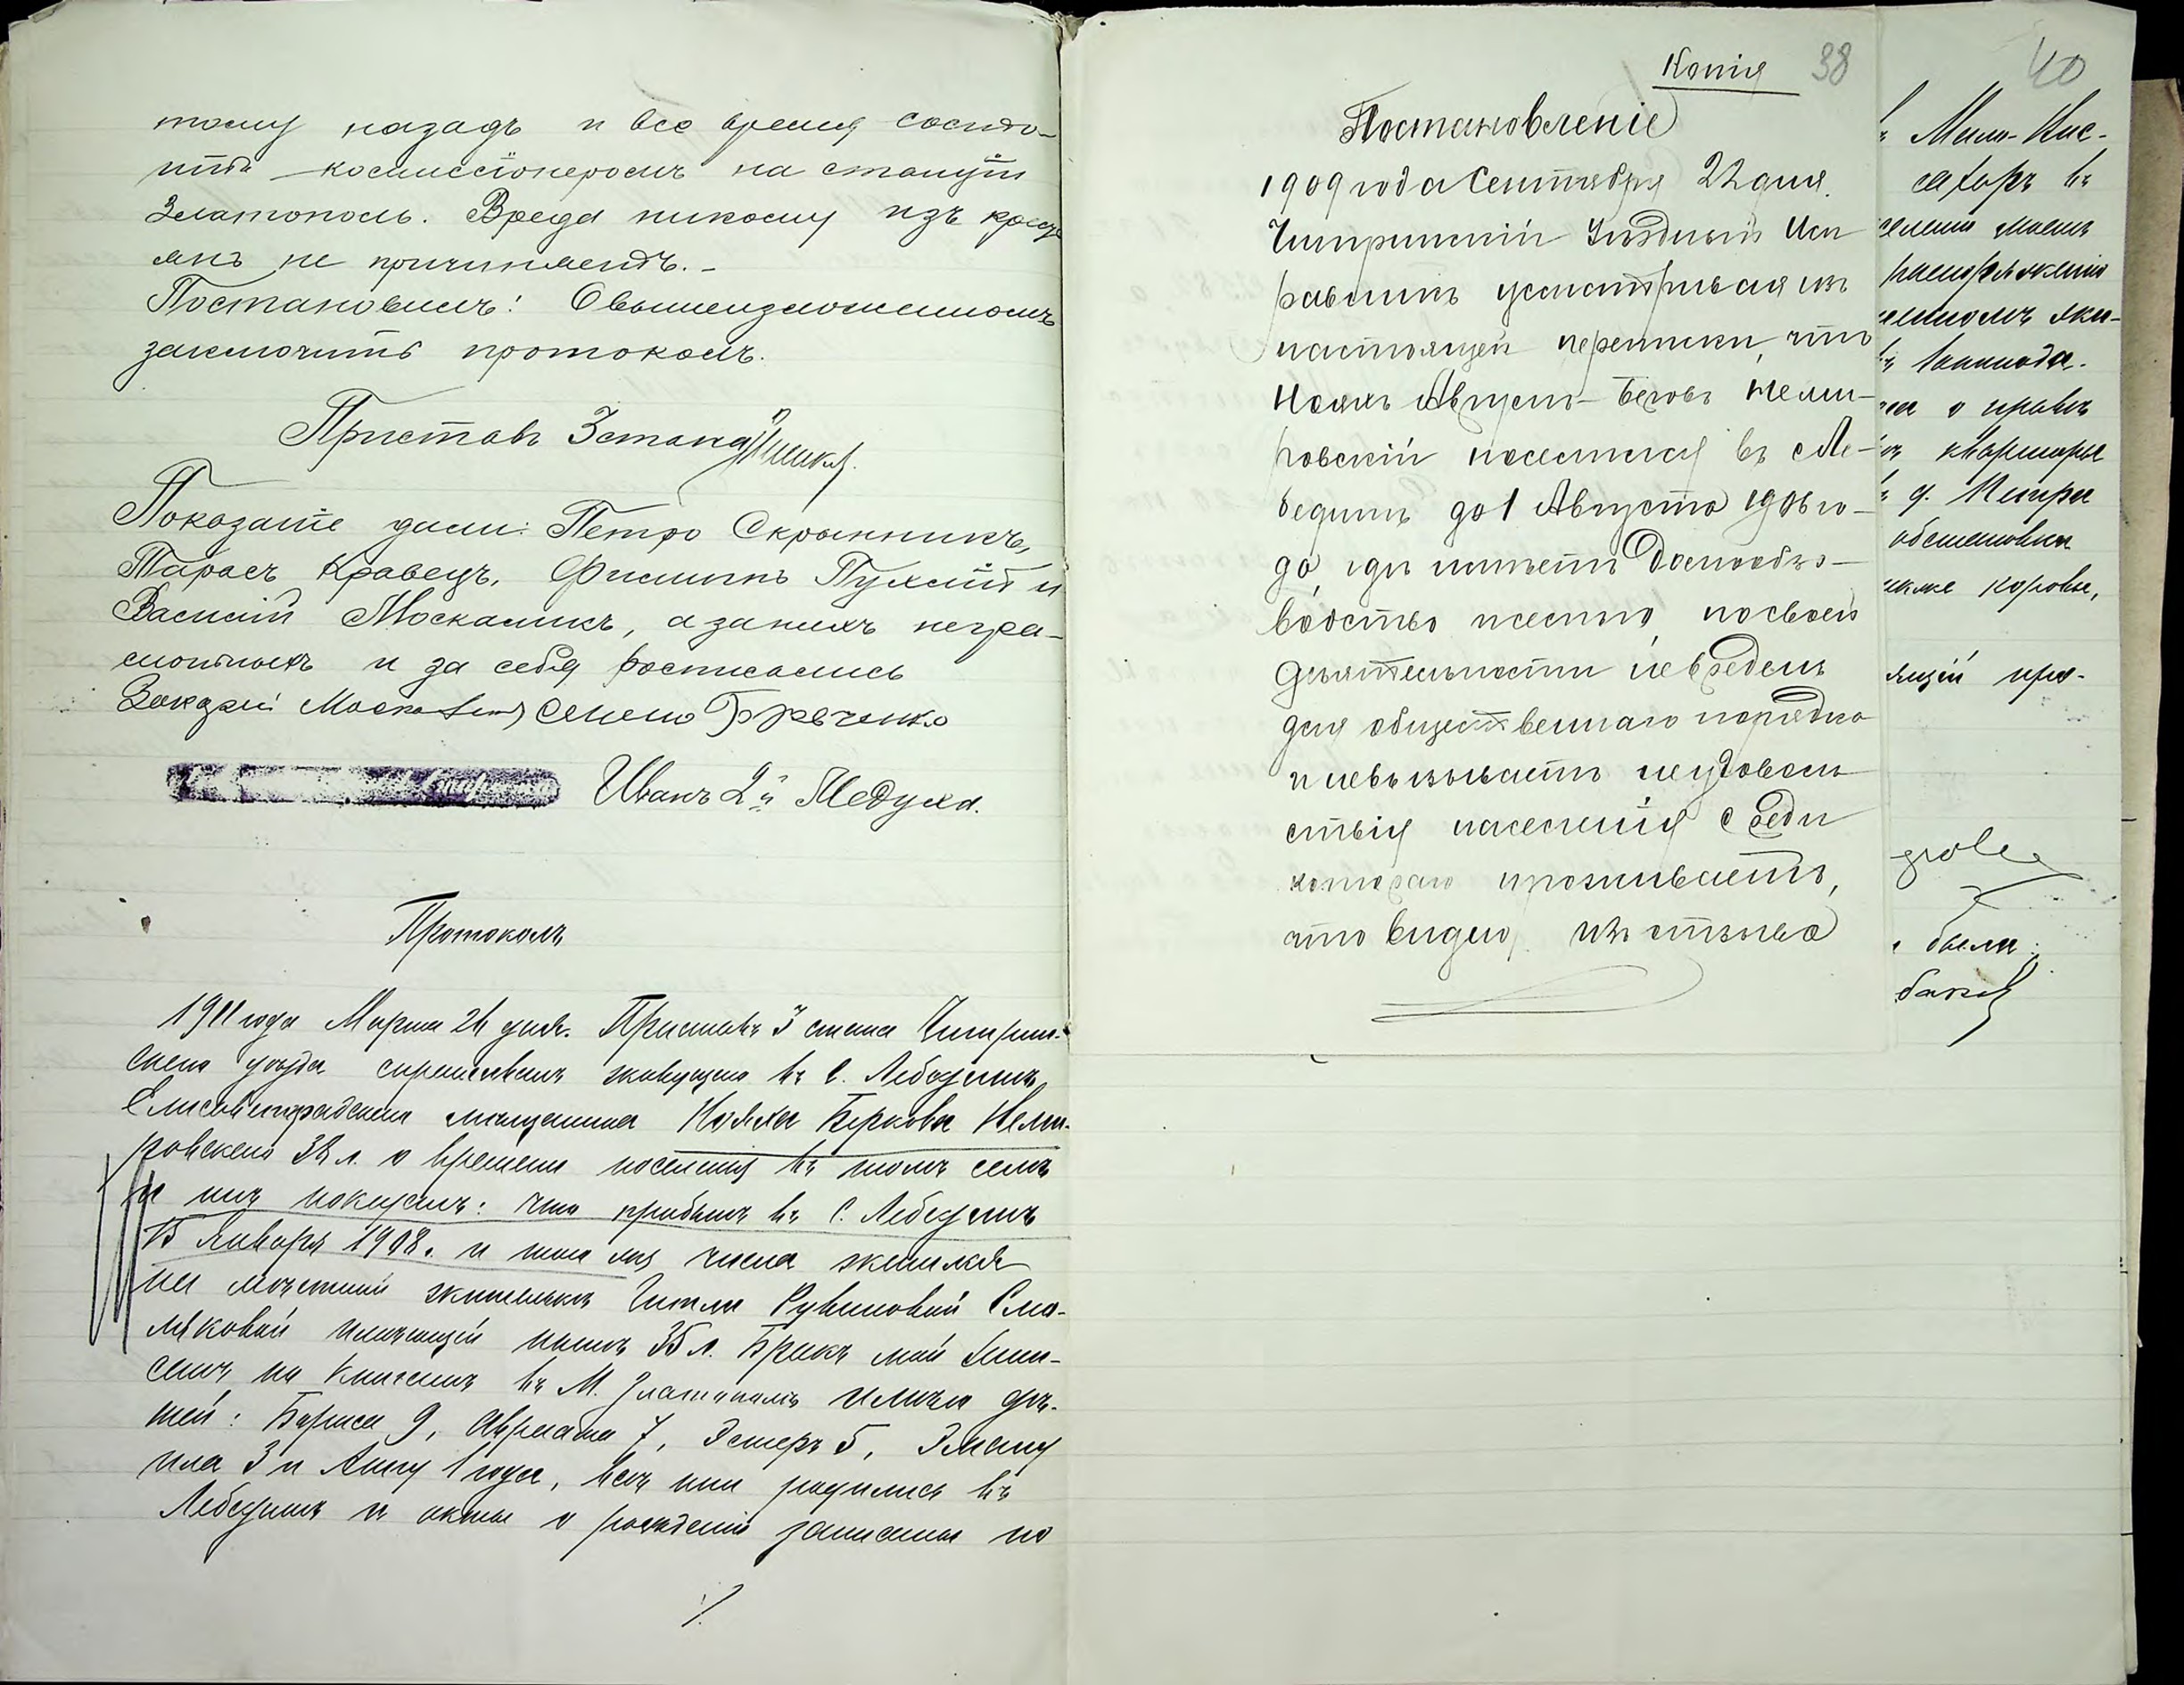 тому назадъ и все время состо-
итъ комиссіонеромъ на станціи
Златополь. Вреда никому изъ кресть
янъ не причиняетъ.-
Постановилъ: О вышеизложенномъ
заключить протоколъ.
Приставъ 3 стана
Показаніе дали: Петро Скрынникъ,
Тарасъ Кравецъ, Филиппъ Пухлій и
Василій Москаликъ, а за нихъ негра-
мотныхъ и за себя росписались
Семенъ
Иванъ 2й Медуха.
Протоколъ
1911 года Марта 24 дня. Приставъ 3 стана Чигирин-
скаго уѣзда спрашивалъ живущаго въ с. Лебединѣ
Елисаветградскаго мѣщанина Нояха Беркова Неми-
ровскаго 38 л. о времени поселенія въ томъ селѣ
и онъ показалъ: что прибылъ въ с. Лебединъ
15 Января 1908. и того же числа женился
на мѣстной жительницѣ Гитли Рувиновой Смо-
ляковой имѣющей нынѣ 35 л. Бракъ мой
въ М. Златополѣ имѣю дѣ-
тей: Бориса 9, Авраама 7, Эстеръ 5, Эману
ила 3 и Анну 1 года, всѣ они родились въ
Лебединѣ и акты о рожденіи записаны по
Копія 38
Постановленіе
1909 года Сентября 22 дня.
Чигиринскій Уѣздный Исп
равникъ усматривая изъ
настоящей переписки, что
Ноахъ Неми-
ровскій поселился въ с Ле-
бединъ до 1 Августа 1906 го-
да, гдѣ имѣетъ домообза-
водство осѣдло, по своей
дѣятельности не вреденъ
для общественнаго порядка
и не вызываетъ неудоволь
ствія населенія среди
котораго проживаетъ,
что видно изъ отзыва
40
сахаръ въ
квартиры
обстановки
коровы,
были